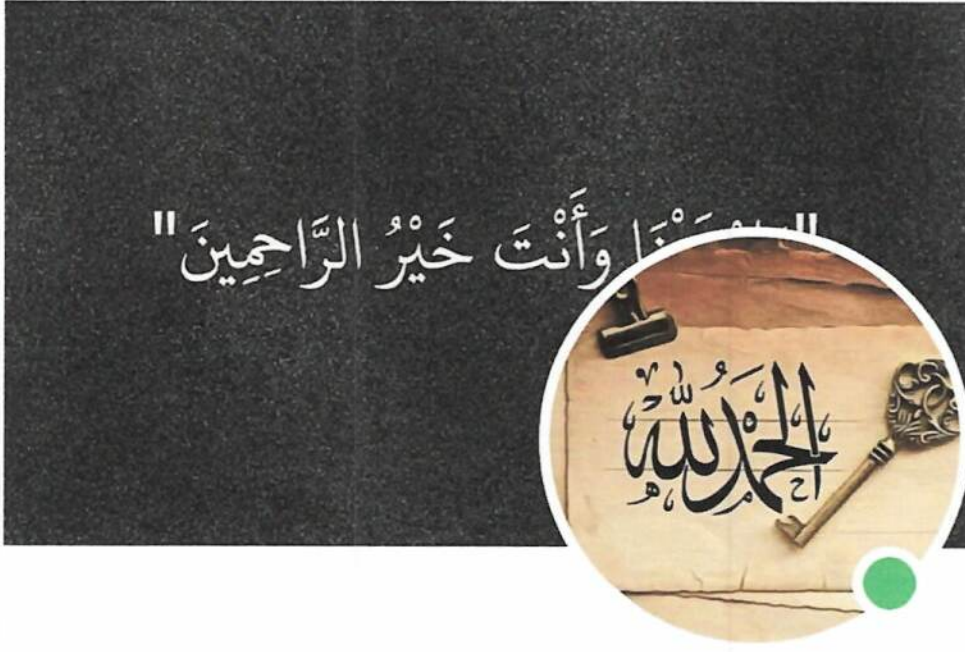 وَأَنْتَ خَيْرُ الرَّاحِمِينَ"
الحمد لله